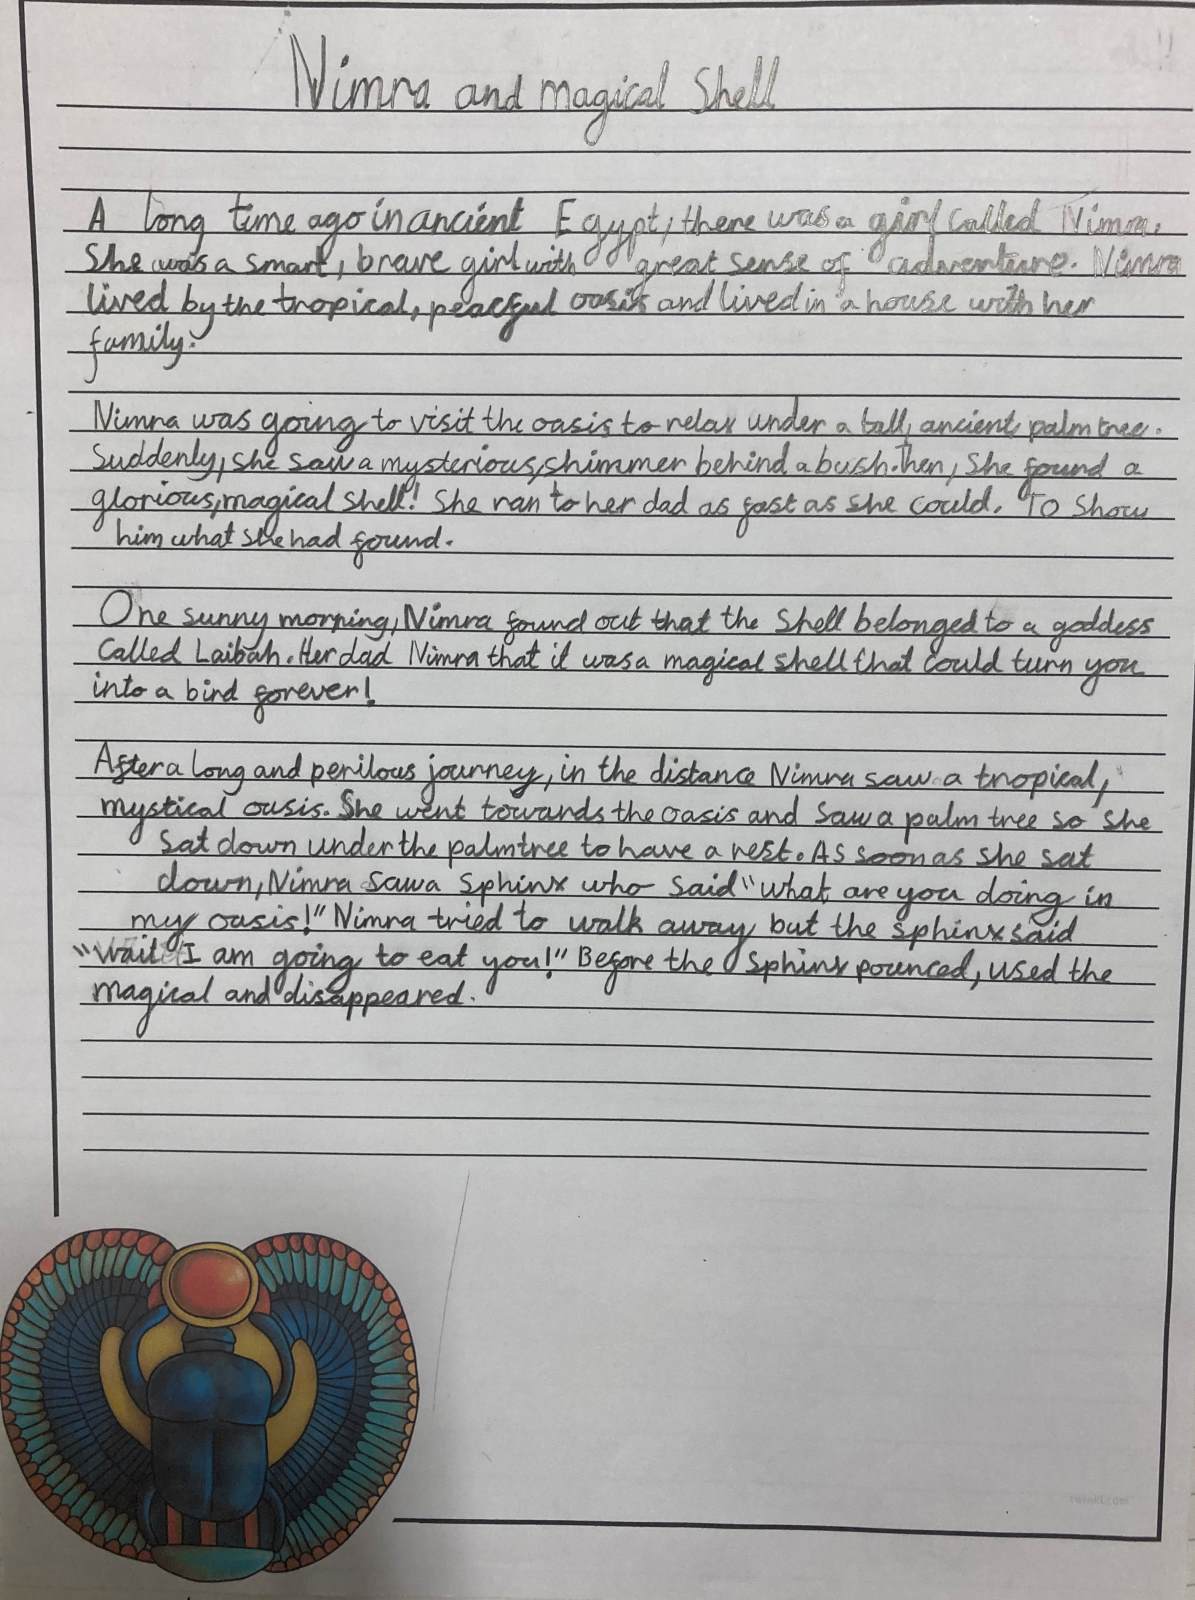 Nimra and magical Shell
A long time ago in ancient Egypt, there was a girl called Nimra.
She was a smart, brave girl with great sense of adventure. Nimra
lived by the tropical, peacful oasis and lived in a house with her
family.
Nimra was going to visit the oasis to relax under a tall, ancient palm tree.
Suddenly, she saw a mysterious, shimmer behind a bush. Then, She found a
glorious, magical shell! She ran to her dad as fast as she could. To Show
him what she had found.
One sunny morning, Nimra found out that the Shell belonged to a goddess
Called Laibah. Her dad Nimra that it was a magical shell that could turn you
into a bird forever!
After a long and perilous journey, in the distance Nimra saw a tropical,
mystical oasis. She went towards the oasis and Saw a palm tree so she
Sat down under the palm tree to have a rest. As soon as she sat
down, Nimra saw a Sphinx who said "what are you doing in
my oasis!" Nimra tried to walk away but the sphinx said
"wait I am going to eat you!" Before the Sphinx pounced, used the
magical and disappeared.
twinkl.com